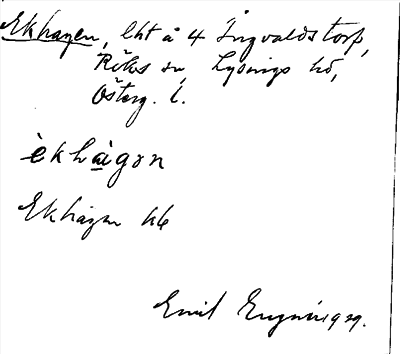 Ekhagen, lht å 4 Ingvaldstorp,
Röks sn, Lysings hd,
Österg. l.
èkhàgən
Ekhagen kb
Emil 1929.